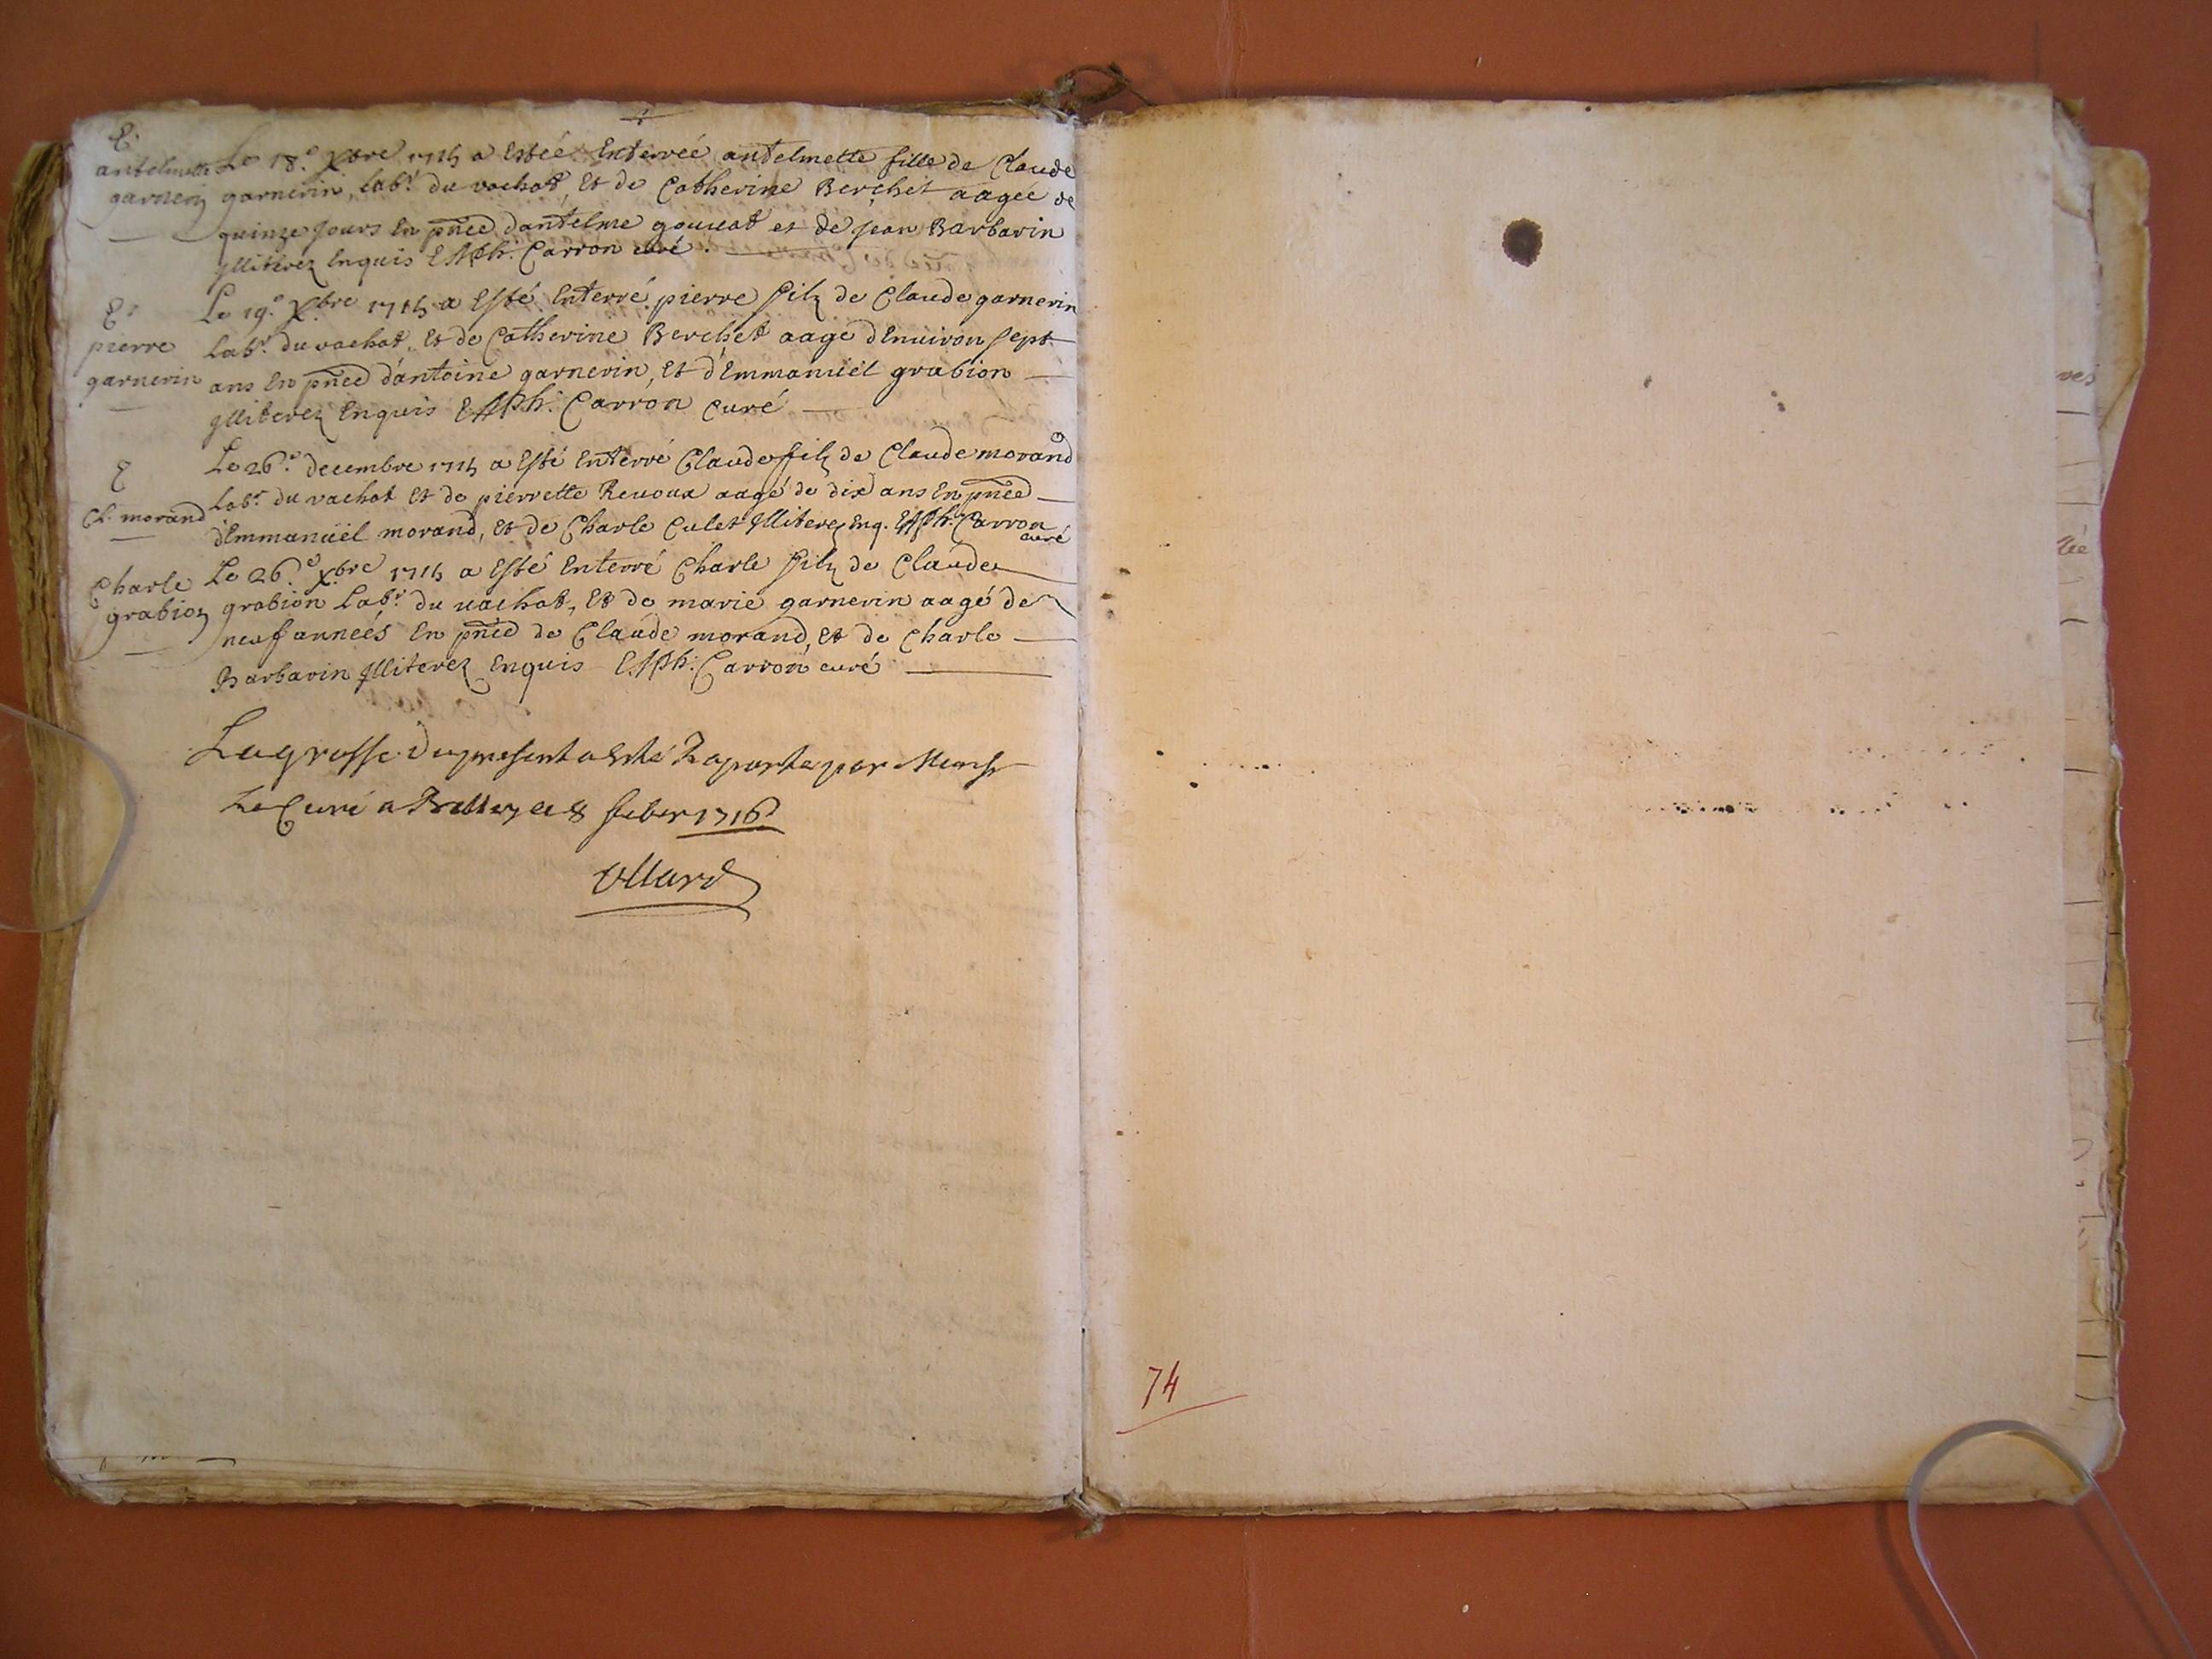 E.
antelmette
garnerin
Le 18.e Xbre 1715 a Estée Enterrée antelmette fille de Claude
garnerin, labr. du vachat, Et de Catherine Berchet aagée de
quinze jours En pñce d'antelme gouuat et de jean Barbarin
jlliterez Enquis Carron curé.
E.
pierre
garnerin
Le 19.e Xbre 1715 a Esté Enterré pierre filz de Claude garnerin
Labr. du vachat, Et de Catherine Berchet aagé d'Enuiron sept
ans En pñce d'antoine garnerin, Et d'Emmanüel grabion
jlliterez Enquis Carron Curé
E
Cl. morand
Le 26.e decembre 1715 a Esté Enterré Claude filz de Claude morand
Labr. du vachat Et de pierrette Reuoux aagé de dix ans En pñce
d'Emmanüel morand, Et de Charle Culet jlliterez Enq. Carron
curé
Charle
grabion
Le 26.e Xbre 1715 a Esté Enterré Charle filz de Claude
grabion Labr. du uachat, Et de marie garnerin aagé de
neuf anneés En pñce de Claude morand, Et de Charle
Barbarin jlliterez Enquis Carron curé
La grosse du present a Esté Raportée par Monsr
Le Curé a Belley le 8 feber 1716
74